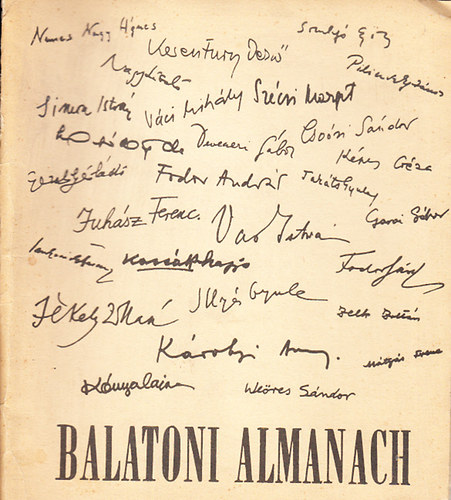 Nemes Nagy Ágnes
Keresztury Dezső
Somlyó György
Nagy László
Pilinszky János
Simon István
Váci Mihály
Szécsi Margit
Devecseri Gábor
Csoóri Sándor
Képes Géza
Fodor András
Takáts Gyula
Garai Gábor
Juhász Ferenc
Vas István
Kassák Lajos
Fodor József
Jékely Zoltán
Illyés Gyula
Zelk Zoltán
Károlyi Amy
Kónya Lajos
Weöres Sándor
BALATONI ALMANACH